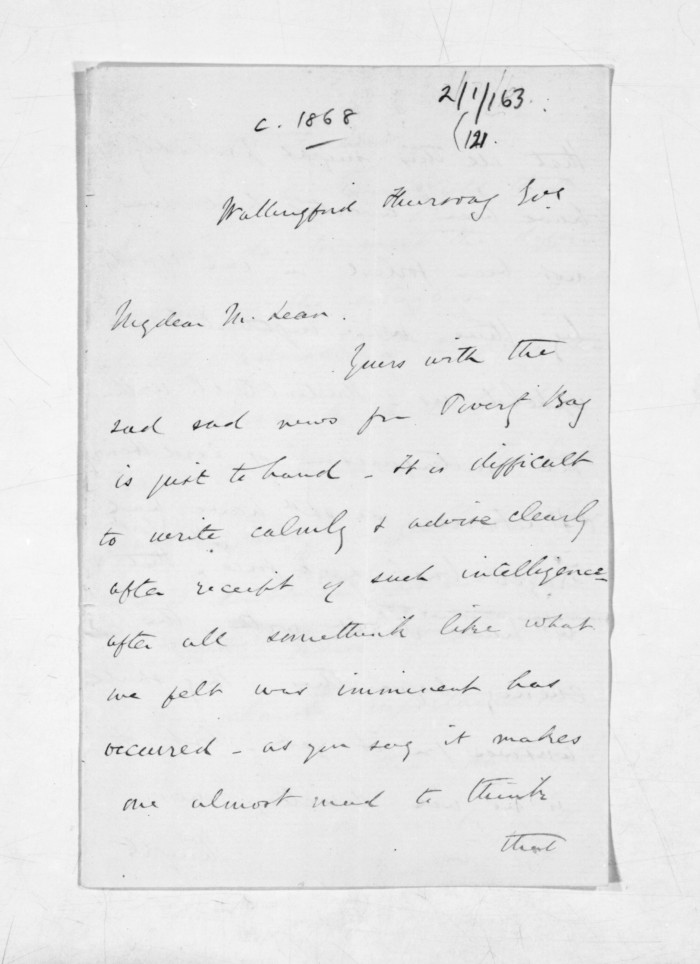 2/1/163.
c. 1868
(121.
Wallingford Thursday Eve
My dear McLean.
Yours with the
sad sad news fm Poverty Bay
is just to hand - It is difficult
to write calmly & advise clearly
after receipt of such intelligence -
after all something like what
we felt was imminent has
occurred - as you say it makes
one almost mad to think
that